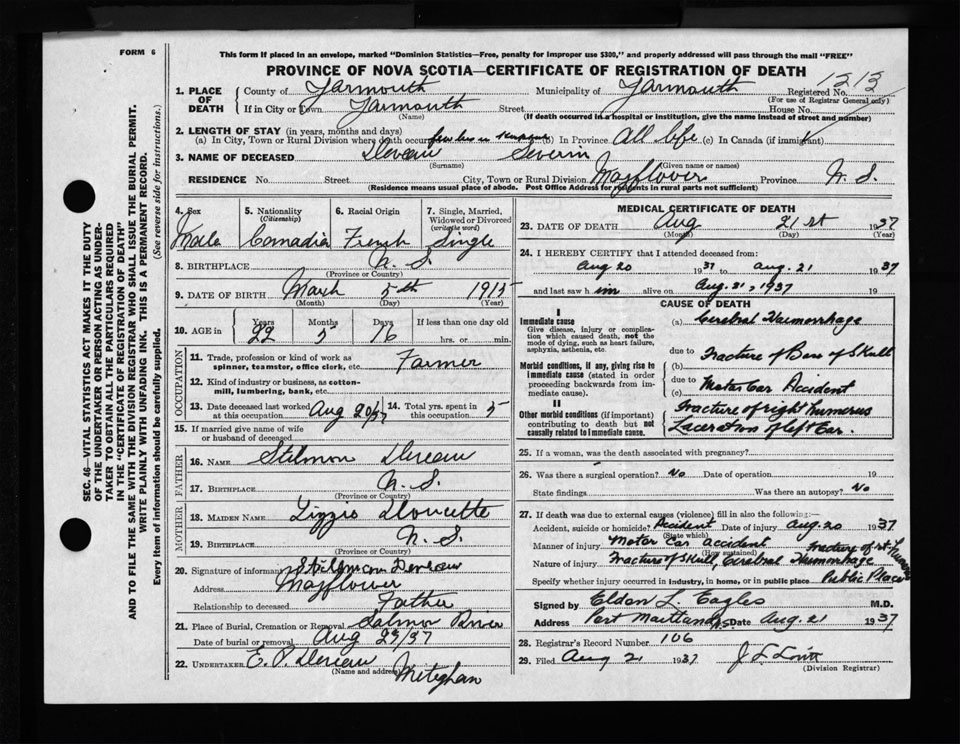 FORM 6
This form if placed in an envelope, marked "Dominion Statistics—Free, penalty for improper use $300," and properly addressed will pass through the mail "FREE"
PROVINCE OF NOVA SCOTIA—CERTIFICATE OF REGISTRATION OF DEATH
1. PLACE OF DEATH County of Yarmouth Municipality of Yarmouth Registered No. 1213
(For use of Registrar General only)
If in City or Town Yarmouth Street House No.
(Name) (If death occurred in a hospital or institution, give the name instead of street and number)
2. LENGTH OF STAY (in years, months and days)
(a) In City, Town or Rural Division where death occurred few hrs in (b) In Province All life (c) In Canada (if immigrant)
3. NAME OF DECEASED Deveau Severin
(Surname) (Given name or names)
RESIDENCE No. Street City, Town or Rural Division Mayflower Province N. S.
(Residence means usual place of abode. Post Office Address for residents in rural parts not sufficient)
4. Sex 5. Nationality (Citizenship) 6. Racial Origin 7. Single, Married, Widowed or Divorced (write the word)
Male Canadia French Single
8. BIRTHPLACE N. S.
(Province or Country)
9. DATE OF BIRTH March 5th 1915
(Month) (Day) (Year)
10. AGE in Years Months Days If less than one day old
22 5 16 hrs. or min.
OCCUPATION
11. Trade, profession or kind of work as spinner, teamster, office clerk, etc. Farmer
12. Kind of industry or business, as cotton-mill, lumbering, bank, etc.
13. Date deceased last worked at this occupation Aug 20/37 14. Total yrs. spent in this occupation 5
15. If married give name of wife or husband of deceased
FATHER
16. NAME Stilman Deveau
17. BIRTHPLACE N. S.
(Province or Country)
MOTHER
18. MAIDEN NAME Lizzie Doucette
19. BIRTHPLACE N. S.
(Province or Country)
20. Signature of informant Stilman Deveau
Address Mayflower
Relationship to deceased Father
21. Place of Burial, Cremation or Removal Salmon River
Date of burial or removal Aug 23/37
22. UNDERTAKER E. P. Deveau Meteghan
(Name and address)
MEDICAL CERTIFICATE OF DEATH
23. DATE OF DEATH Aug 21st 1937
(Month) (Day) (Year)
24. I HEREBY CERTIFY that I attended deceased from:
Aug 20 1937 to Aug. 21 1937
and last saw him alive on Aug. 21, 1937 19
CAUSE OF DEATH
I
Immediate cause (a) Cerebral Haemorrhage
Give disease, injury or complication which caused death, not the mode of dying, such as heart failure, asphyxia, asthenia, etc.
due to
Morbid conditions, if any, giving rise to immediate cause (stated in order proceeding backwards from immediate cause). (b) Fracture of Base of Skull
due to
(c) Motor Car Accident
II
Other morbid conditions (if important) contributing to death but not causally related to immediate cause. Fracture of right humerus
Laceration of left Ear.
25. If a woman, was the death associated with pregnancy?
26. Was there a surgical operation? No Date of operation 19
State findings Was there an autopsy? No
27. If death was due to external causes (violence) fill in also the following:—
Accident, suicide or homicide? Accident Date of injury Aug. 20 1937
(State which)
Manner of injury Motor Car accident
(How sustained)
Nature of injury Fracture of Skull, Cerebral Haemorrhage Fracture of rt. humerus
Specify whether injury occurred in industry, in home, or in public place Public Place
Signed by Eldon L. Eagles M.D.
Address Port Maitland N.S. Date Aug. 21 1937
28. Registrar's Record Number 106
29. Filed Aug 21 1937 J L Lovitt
(Division Registrar)
SEC. 46—VITAL STATISTICS ACT MAKES IT THE DUTY
OF THE UNDERTAKER OR PERSON ACTING AS UNDER-
TAKER TO OBTAIN ALL THE PARTICULARS REQUIRED
IN THE "CERTIFICATE OF REGISTRATION OF DEATH"
AND TO FILE THE SAME WITH THE DIVISION REGISTRAR WHO SHALL ISSUE THE BURIAL PERMIT.
WRITE PLAINLY WITH UNFADING INK. THIS IS A PERMANENT RECORD.
Every item of information should be carefully supplied. (See reverse side for instructions.)